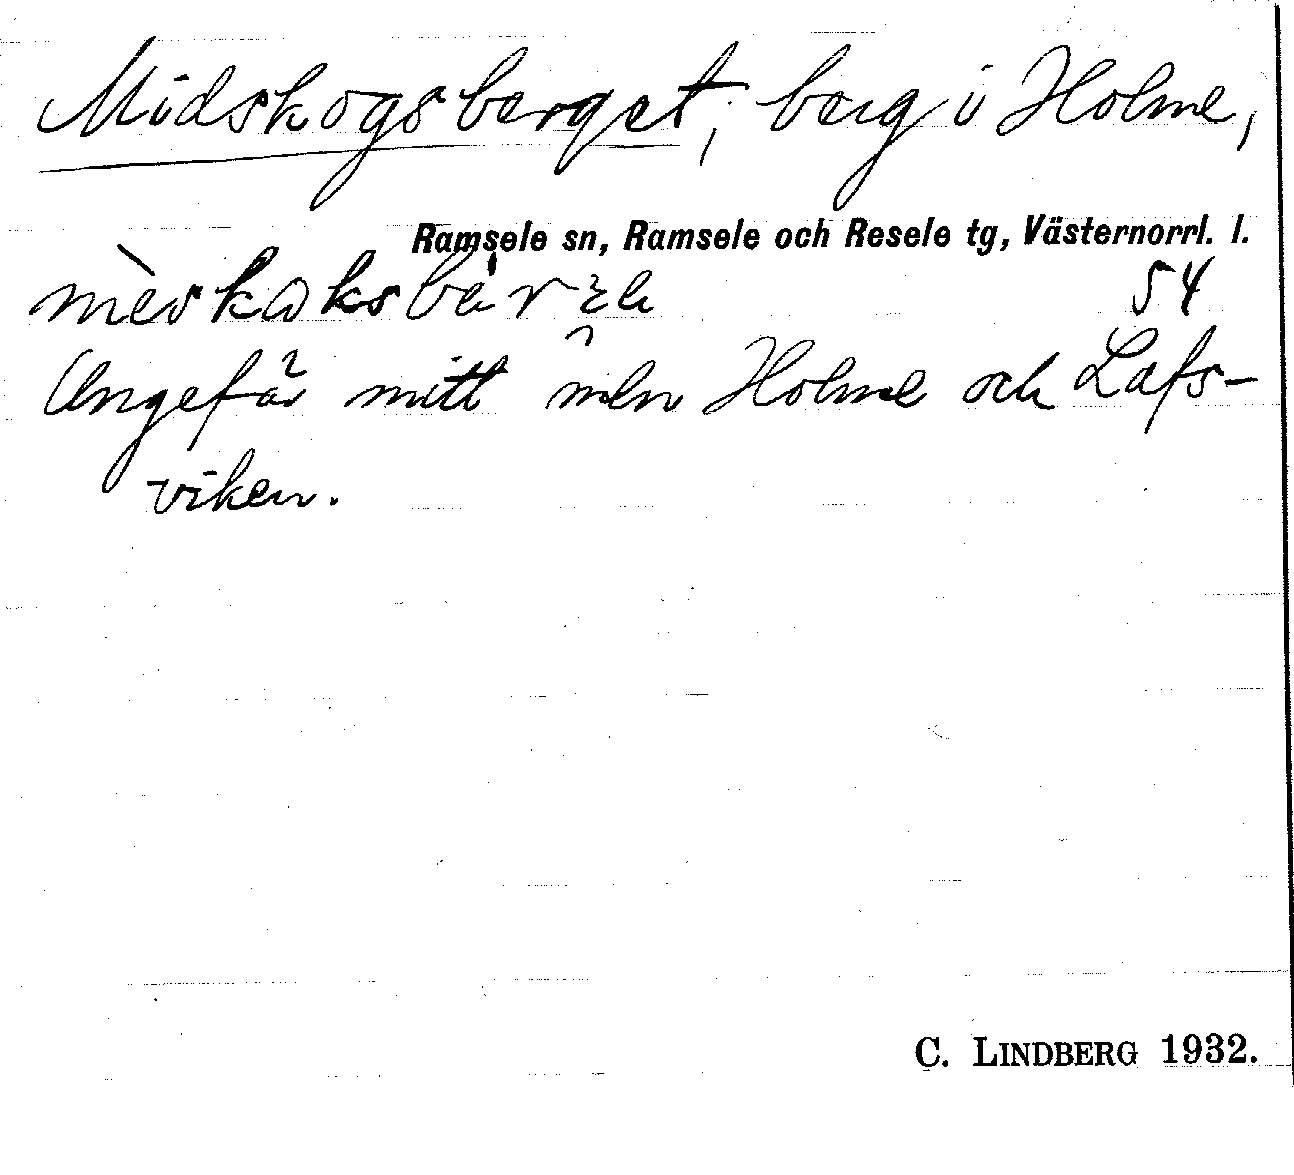 Midskogsberget, berg i Holme,
Ramsele sn, Ramsele och Resele tg, Västernorrl. l.
54
Ungefär mitt mln Holme och Lafs-
viken.
C. LINDBERG 1932.